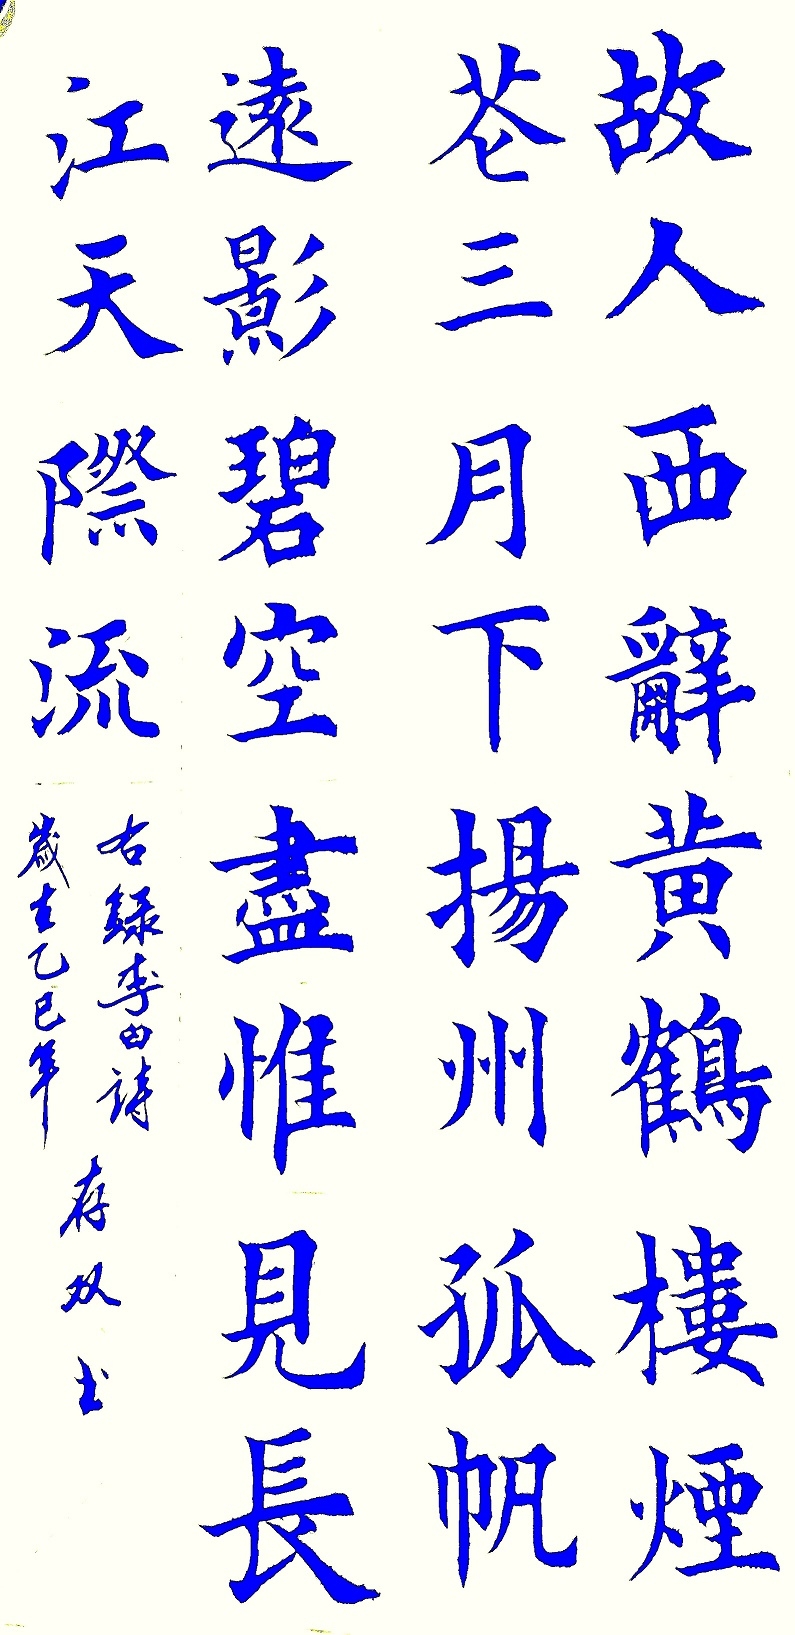 故人西辭黄鶴樓煙
花三月下揚州孤帆
遠影碧空盡惟見長
江天際流
右録李白詩
歲在乙巳年
存双书